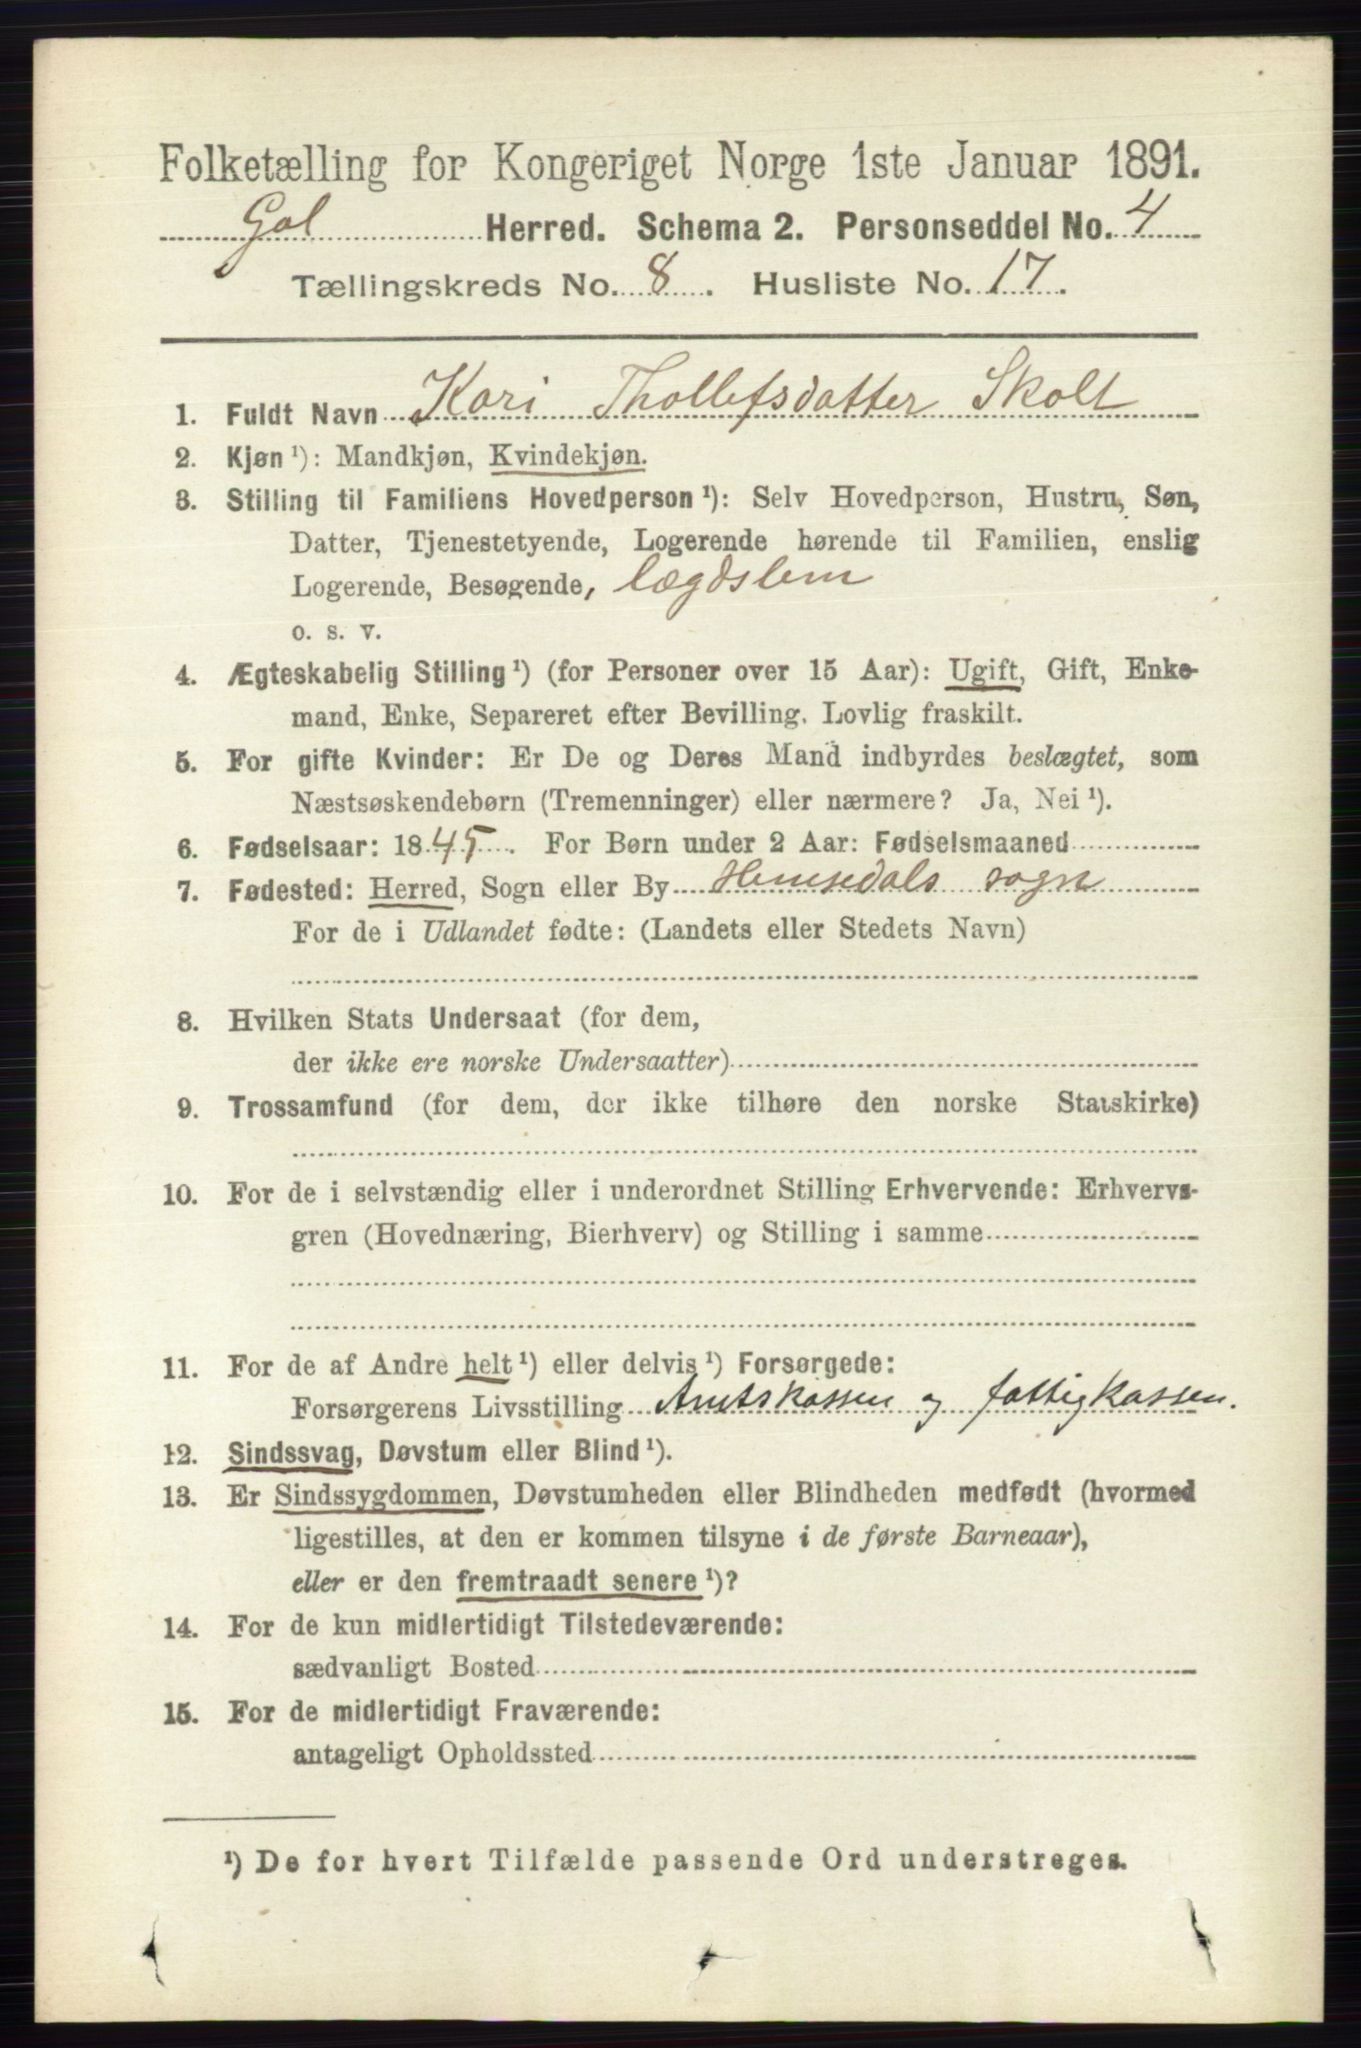 Folketælling for Kongeriget Norge 1ste Januar 1891.
Gol Herred. Schema 2. Personseddel No. 4
Tællingskreds No. 8. Husliste No. 17.
1. Fuldt Navn Kari Thollefsdatter Skolt
2. Kjøn ¹): Mandkjøn, Kvindekjøn.
3. Stilling til Familiens Hovedperson ¹): Selv Hovedperson, Hustru, Søn,
Datter, Tjenestetyende, Logerende hørende til Familien, enslig
Logerende, Besøgende, lægdslem
o. s. v.
4. Ægteskabelig Stilling ¹) (for Personer over 15 Aar): Ugift, Gift, Enke-
mand, Enke, Separeret efter Bevilling. Lovlig fraskilt.
5. For gifte Kvinder: Er De og Deres Mand indbyrdes beslægtet, som
Næstsøskendebørn (Tremenninger) eller nærmere? Ja, Nei ¹).
6. Fødselsaar: 1845. For Børn under 2 Aar: Fødselsmaaned
7. Fødested: Herred, Sogn eller By Hemsedals sogn
For de i Udlandet fødte: (Landets eller Stedets Navn)
8. Hvilken Stats Undersaat (for dem,
der ikke ere norske Undersaatter)
9. Trossamfund (for dem, der ikke tilhøre den norske Statskirke)
10. For de i selvstændig eller i underordnet Stilling Erhvervende: Erhvervs-
gren (Hovednæring, Bierhverv) og Stilling i samme
11. For de af Andre helt ¹) eller delvis ¹) Forsørgede:
Forsørgerens Livsstilling Amtskassen og fattigkassen.
12. Sindssvag, Døvstum eller Blind ¹).
13. Er Sindssygdommen, Døvstumheden eller Blindheden medfødt (hvormed
ligestilles, at den er kommen tilsyne i de første Barneaar),
eller er den fremtraadt senere ¹)?
14. For de kun midlertidigt Tilstedeværende:
sædvanligt Bosted
15. For de midlertidigt Fraværende:
antageligt Opholdssted
¹) De for hvert Tilfælde passende Ord understreges.